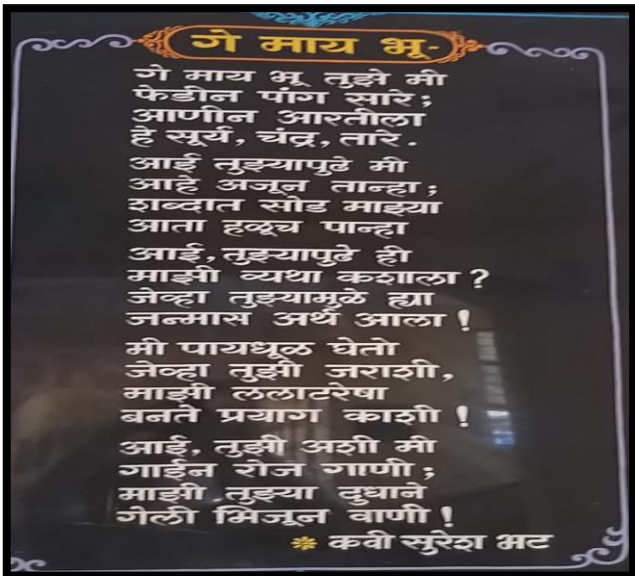 गे माय भू-
गे माय भू तुझे मी
फेडीन पांग सारे;
आणीन आरतीला
हे सूर्य, चंद्र, तारे.
आई तुझ्यापुढे मी
आहे अजून तान्हा;
शब्दात सोड माझ्या
आता हळूच पान्हा
आई, तुझ्यापुढे ही
माझी व्यथा कशाला ?
जेव्हा तुझ्यामुळे ह्या
जन्मास अर्थ आला !
मी पायधूळ घेतो
जेव्हा तुझी जराशी,
माझी ललाटरेषा
बनते प्रयाग काशी !
आई, तुझी अशी मी
गाईन रोज गाणी;
माझी तुझ्या दुधाने
गेली भिजून वाणी!
कवी सुरेश भट